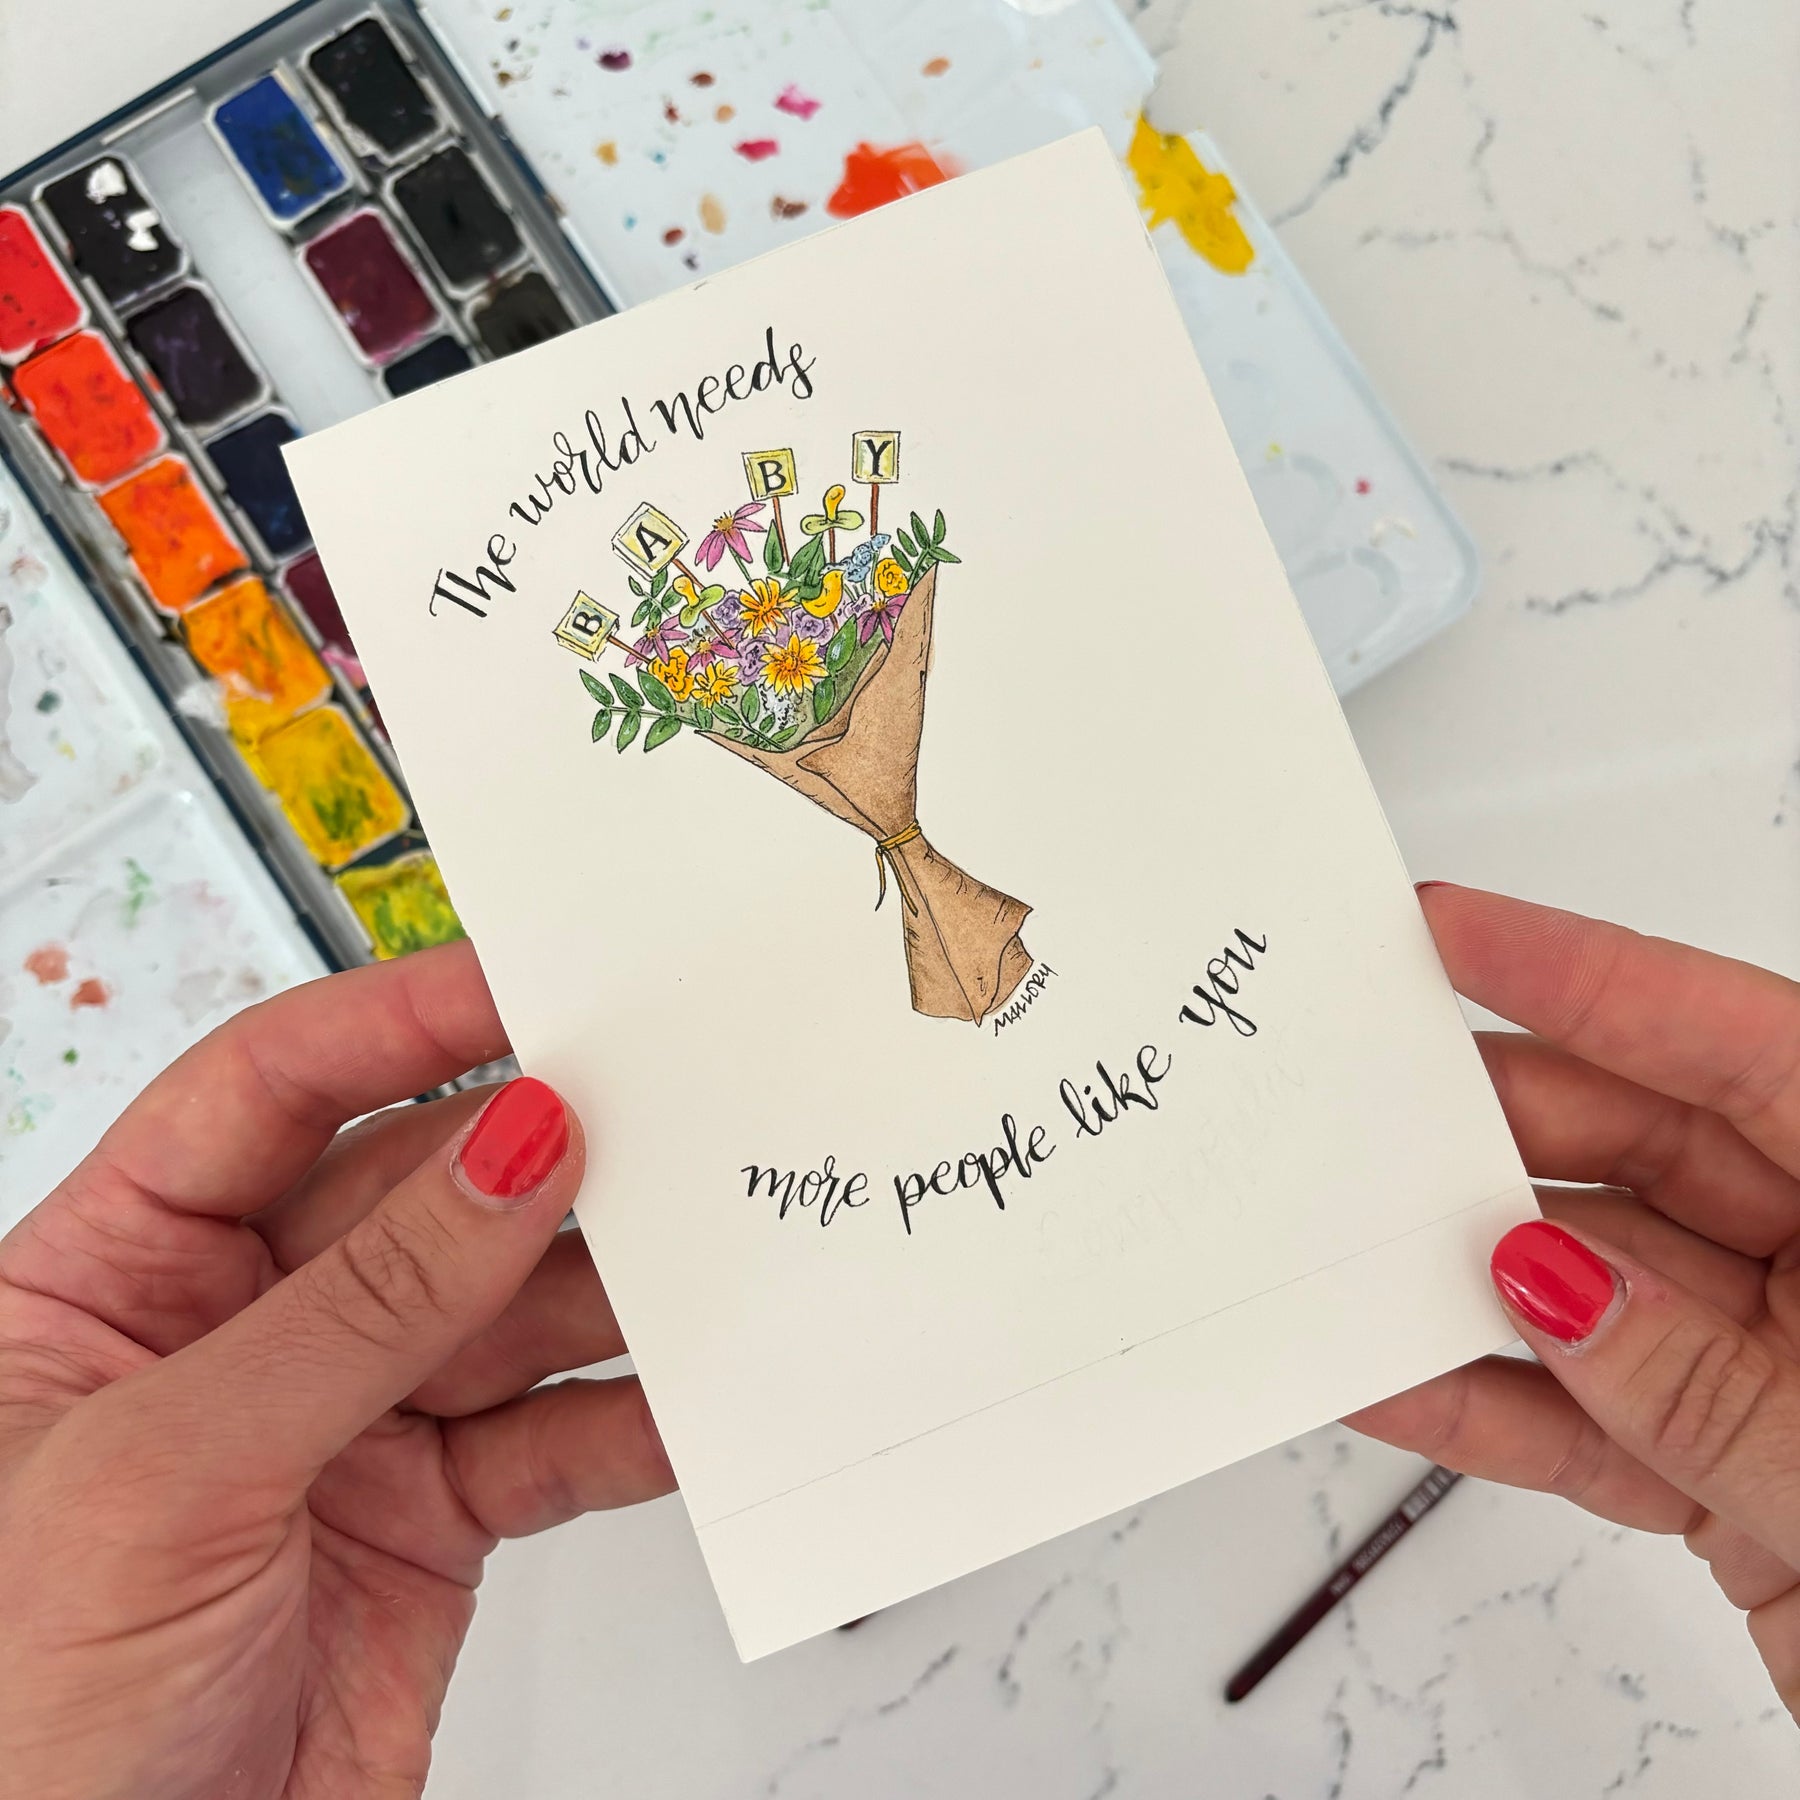 The world needs
B A B Y
MALLORY
more people like you